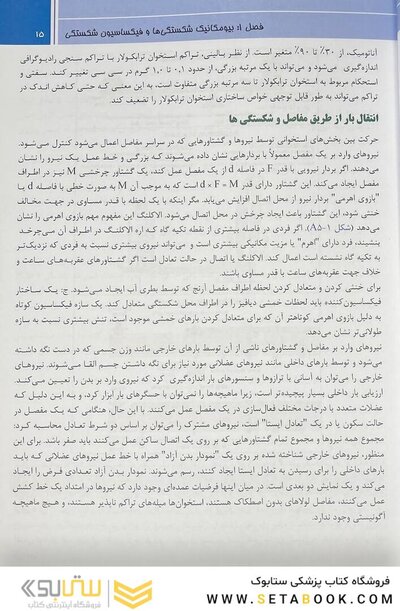 فصل ۱: بیومکانیک شکستگی‌ها و فیکساسیون شکستگی
۱۵
آناتومیک، از ۳۰٪ تا ۹۰٪ متغیر است. از نظر بالینی، تراکم استخوان ترابکولار با تراکم سنجی رادیوگرافی
اندازه‌گیری می‌شود و می‌تواند با یک مرتبه بزرگی، از حدود ۰٫۱ تا ۱٫۰ گرم در سی سی تغییر کند. سفتی و
استحکام مربوط به استخوان ترابکولار تا سه مرتبه بزرگی متفاوت است، به این معنی که حتی کاهش اندک در
تراکم می‌تواند به طور قابل توجهی خواص ساختاری استخوان ترابکولار را تضعیف کند.
انتقال بار از طریق مفاصل و شکستگی ها
حرکت بین بخش‌های استخوانی توسط نیروها و گشتاورهایی که در سراسر مفاصل اعمال می‌شود کنترل می‌شود.
نیروهای وارد بر یک مفصل معمولاً با بردارهایی نشان داده می‌شوند که بزرگی و خط عمل یک نیرو را نشان
می‌دهند. اگر بردار نیرویی با قدر F در فاصله d از مفصل عمل کند، یک گشتاور چرخشی M نیز در اطراف
مفصل ایجاد می‌کند. این گشتاور دارای قدر d × F = M است که به موجب آن M به صورت خطی با فاصله d یا
"بازوی اهرمی" بردار نیرو از محل اتصال افزایش می‌یابد. مگر اینکه با یک لحظه با قدر مساوی در جهت مخالف
خنثی شود، این گشتاور باعث ایجاد چرخش در محل اتصال می‌شود. الاکلنگ این مفهوم مهم بازوی اهرمی را نشان
می‌دهد (شکل ۱-۸A). اگر فردی در فاصله بیشتری از نقطه تکیه گاه که اره الاکلنگ در اطراف آن می‌چرخد
بنشیند، فرد دارای "اهرم" یا مزیت مکانیکی بیشتری است و می‌تواند نیروی بیشتری نسبت به فردی که نزدیک‌تر
به تکیه گاه نشسته است اعمال کند. الاکلنگ یا اتصال در حالت تعادل است اگر گشتاورهای عقربه‌های ساعت و
خلاف جهت عقربه‌های ساعت با قدر مساوی باشند.
برای خنثی کردن و متعادل کردن لحظه اطراف مفصل آرنج که توسط بطری آب ایجاد می‌شود. ج- یک ساختار
فیکساسیون‌کننده باید لحظات خمشی دیافیز را در اطراف محل شکستگی متعادل کند. یک سازه فیکساسیون کوتاه
به دلیل بازوی اهرمی کوتاهتر آن که برای متعادل کردن بارهای خمشی موجود است، تنش بیشتری نسبت به سازه
طولانی‌تر نشان می‌دهد.
نیروهای وارد بر مفصل و گشتاورهای ناشی از آن توسط بارهای خارجی مانند وزن جسمی که در دست نگه داشته
می‌شود و توسط بارهای داخلی مانند نیروهای عضلانی مورد نیاز برای نگه داشتن جسم القا می‌شوند. نیروهای
خارجی را می‌توان به آسانی با ترازوها و سنسورهای بار اندازه‌گیری کرد که نیروی وارد بر بدن را تعیین می‌کند.
ارزیابی بار داخلی بسیار پیچیده‌تر است، زیرا ماهیچه‌ها را نمی‌توان با حسگرهای بار ابزار کرد، و به این دلیل که
عضلات متعدد با درجات مختلف فعال‌سازی در یک مفصل عمل می‌کنند. با این حال، هنگامی که یک مفصل در
حالت سکون یا در یک "تعادل ایستا" است، نیروهای مشترک را می‌توان بر اساس دو شرط تعادل محاسبه کرد:
مجموع همه نیروها و مجموع تمام گشتاورهایی که بر روی یک اتصال ساکن عمل می‌کنند باید صفر باشد. برای این
منظور، نیروهای خارجی شناخته شده بر روی یک "نمودار بدن آزاد" همراه با خط عمل نیروهای عضلانی که باید
بارهای داخلی را برای رسیدن به تعادل ایستا ایجاد کنند، رسم می‌شوند. نمودار بدن آزاد تعدادی فرض را ایجاد
می‌کند و یک نمایش دو بعدی است. در میان اینها فرضیات عمده‌ای وجود دارد که نیروها در امتداد یک خط کشش
عمل می‌کنند، مفاصل لولاهای بدون اصطکاک هستند، استخوان‌ها میله‌های تراکم ناپذیر هستند، و هیچ ماهیچه
آگونیستی وجود ندارد.
فروشگاه کتاب پزشکی ستابوک
WWW.SETABOOK.COM
ستابوک
فروشگاه اینترنتی کتاب